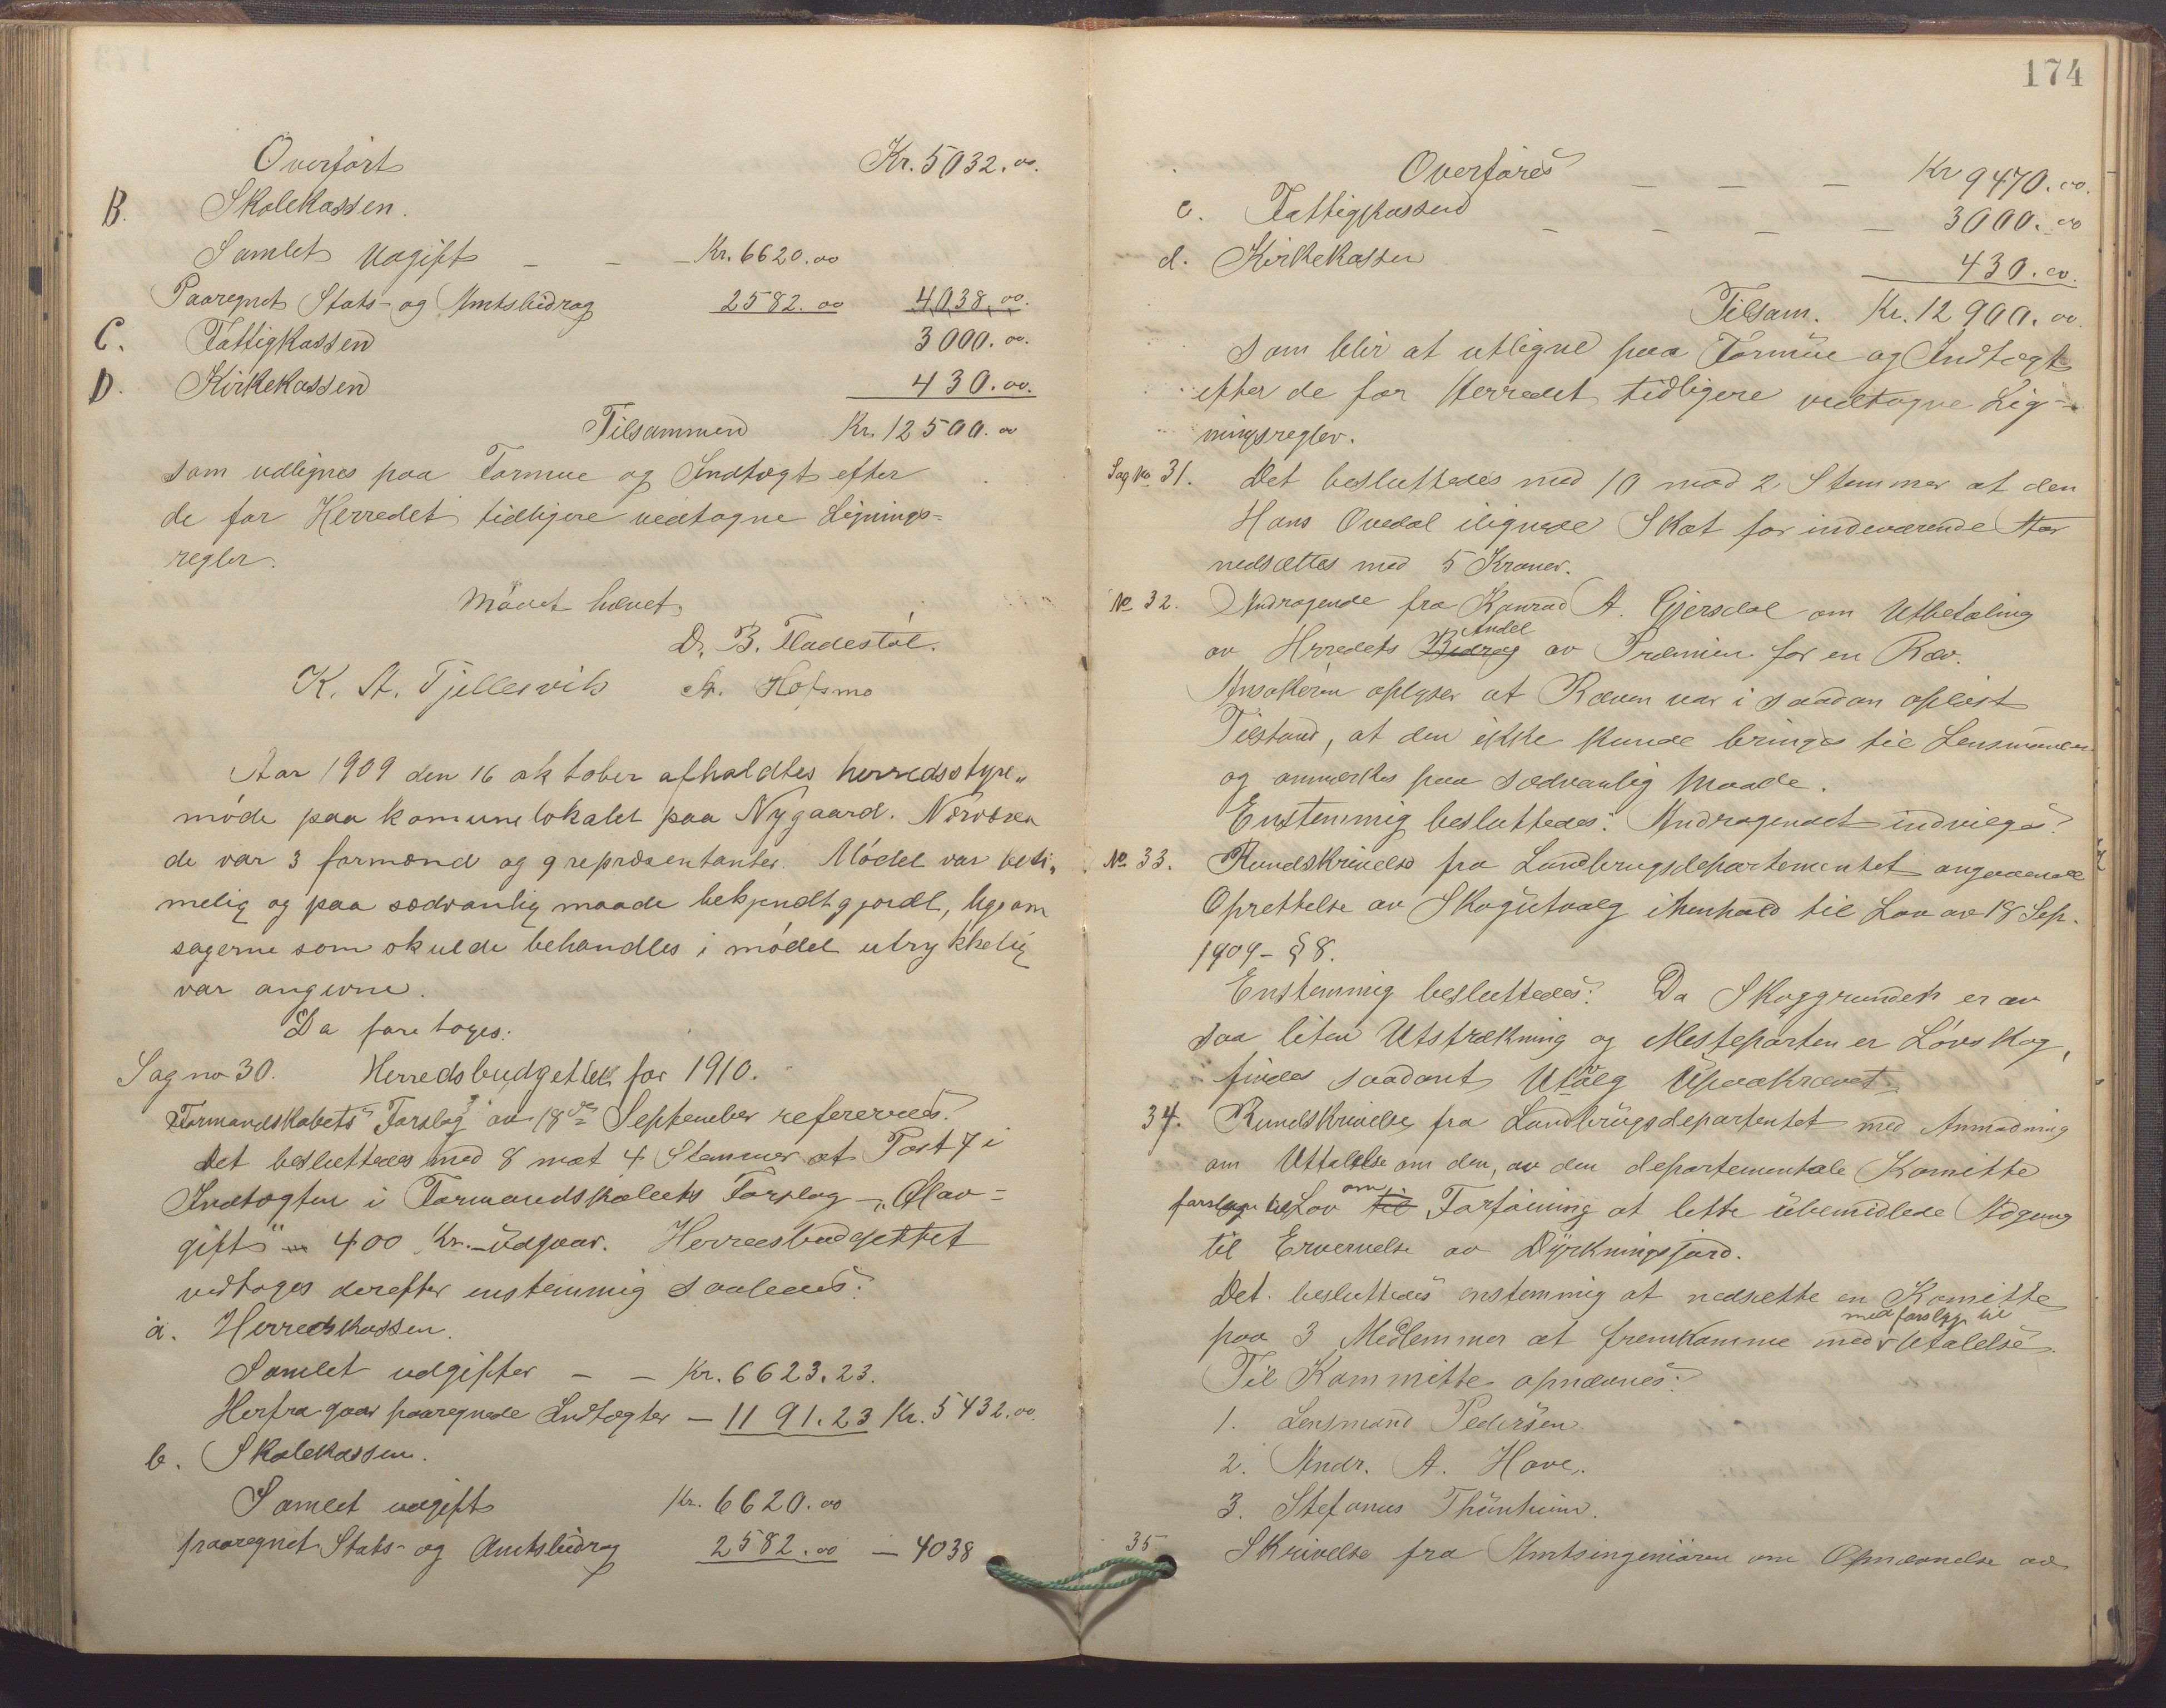 Overført Kr. 5032.00.
B. Skolekassen.
Samlet Udgift – – – Kr. 6620.00
Paaregnet Stats- og Amtsbidrag 2582.00 4038.00.
C. Fattigkassen 3000.00.
D. Kirkekassen 430.00.
Tilsammen Kr. 12500.00
som udlignes paa Formue og Indtægt efter
de for Herredet tidligere vedtagne Lignings-
regler.
Mödet hævet.
D. B. Fladestøl.
K. A. Fjellesvik A. Hofsmo
Aar 1909 den 16 oktober afholdtes herredsstyre„
møde paa komunelokalet paa Nygaard. Nærværen
de var 3 formænd og 9 repræsentanter. Mødet var beti„
melig og paa sædvanlig maade bekjendtgjordt, ligesom
sagerne som skulde behandles i mødet utrykkelig
var angivne.
Da foretoges:
Sag no 30. Herredsbudgettet for 1910.
Formandskabets Forslag av 18de September refereredes.
Det besluttedes med 8 mot 4 Stemmer at Post 7 i
Indtægten i Formandskabets Forslag – „Ølav-
gift" – 400 Kr. – üdgaar. Herredsbudgettet
vedtoges derefter enstemmig saaledes:
a. Herredskassen.
Samlet udgifter – – Kr. 6623.23.
Herfra gaar paaregnede Indtægter – 1191.23 Kr. 5432.00.
b. Skolekassen.
Samlet udgift Kr. 6620.00
paaregnet Stats- og Amtsbidrag 2582.00 – 4038
174
Overføres – – – Kr 9470.00.
c. Fattigkassen – – – – 3000.00
d. Kirkekassen 430.00.
Tilsam. Kr. 12900.00.
som blir at utligne paa Formüe og Indtægt
efter de for Herredet tidligere vedtagne Lig-
ningsregler.
Sag No 31. Det besluttedes med 10 mod 2 Stemmer at den
Hans Ovedal ilignede Skat for indeværende Aar
nedsættes med 5 Kroner.
No 32. Andragende fra Konrad A. Gjersdal om Utbetaling
av Herredets Bidrag Andel av Præmien for en Ræv.
Ansøkeren oplyser at Ræven var i saadan opløst
Tilstand, at den ikke kunde bringes til Lensmanden
og anmerkes paa sædvanlig Maade.
Enstemmig besluttedes: Andragendet indvilges.
No 33. Rundskrivelse fra Landbrugsdepartementet angaaende
Oprettelse av Skogütvalg i Henhold til Lov av 18 Sep.
1909 – § 8.
Enstemmig besluttedes: Da Skoggrunden er av
saa liten Utstrækning og Mesteparten er Løvskog,
findes saadant Utvalg Upaakrævet.
34. Rundskrivelse fra Landbrügsdepartentet med Anmodning
om Uttalelse om den, av den departementale Komitte
forslag til Lov til om Forføining at lette übemidlede Adgang
til Ervervelse av Dyrkningsjord.
Det besluttedes enstemmig at nedsætte en Komitte
paa 3 Medlemmer at fremkomme med med forslag til Utalelse.
Til Kommitte opnævnes:
1. Lensmand Pedersen.
2. Andr. A. Hove.
3. Stefanus Thünheim.
35 Skrivelse fra Amtsingeniøren om Opnævnelse av